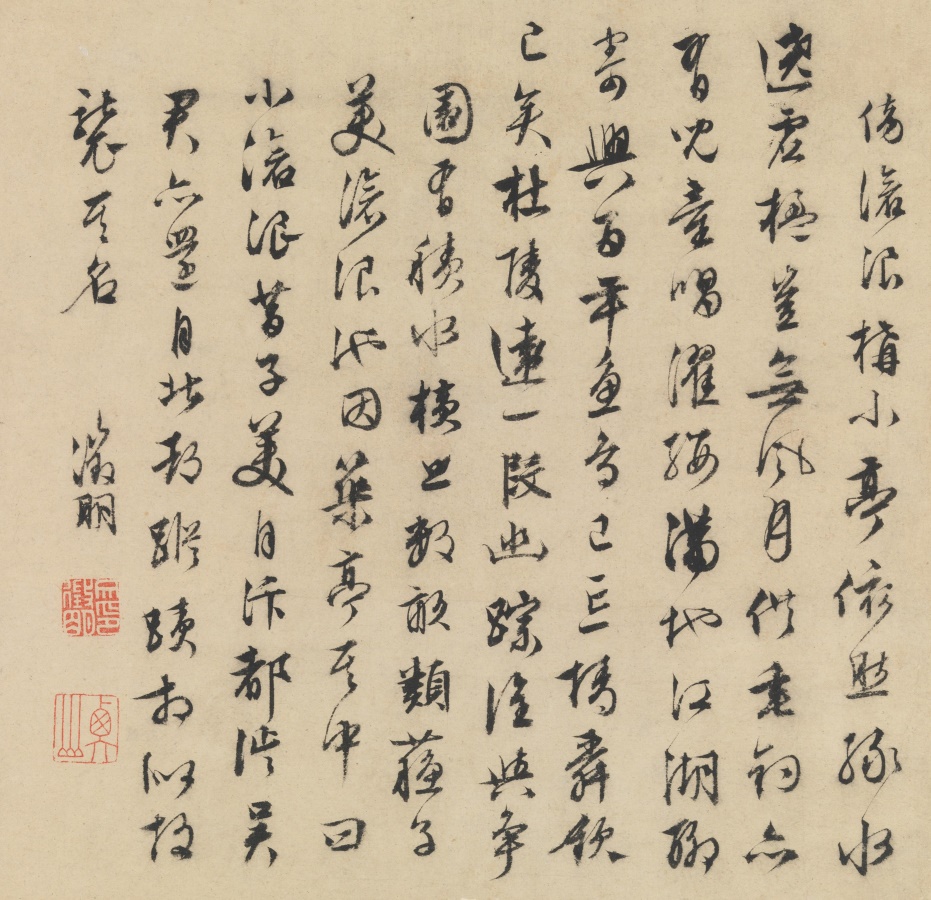 傍滄浪構小亭依然綠水
遶虛楹豈無風月供垂釣亦
有兒童唱濯纓滿地江湖聊
寄興百年魚鳥已忘情舜欽
已矣杜陵遠一段幽踪誰與爭
園有積水橫亘數畝類蘇子
美滄浪池因築亭其中曰
小滄浪昔子美自汴都徙吳
君亦還自北都蹤蹟相似故
襲其名
徵明
衡山